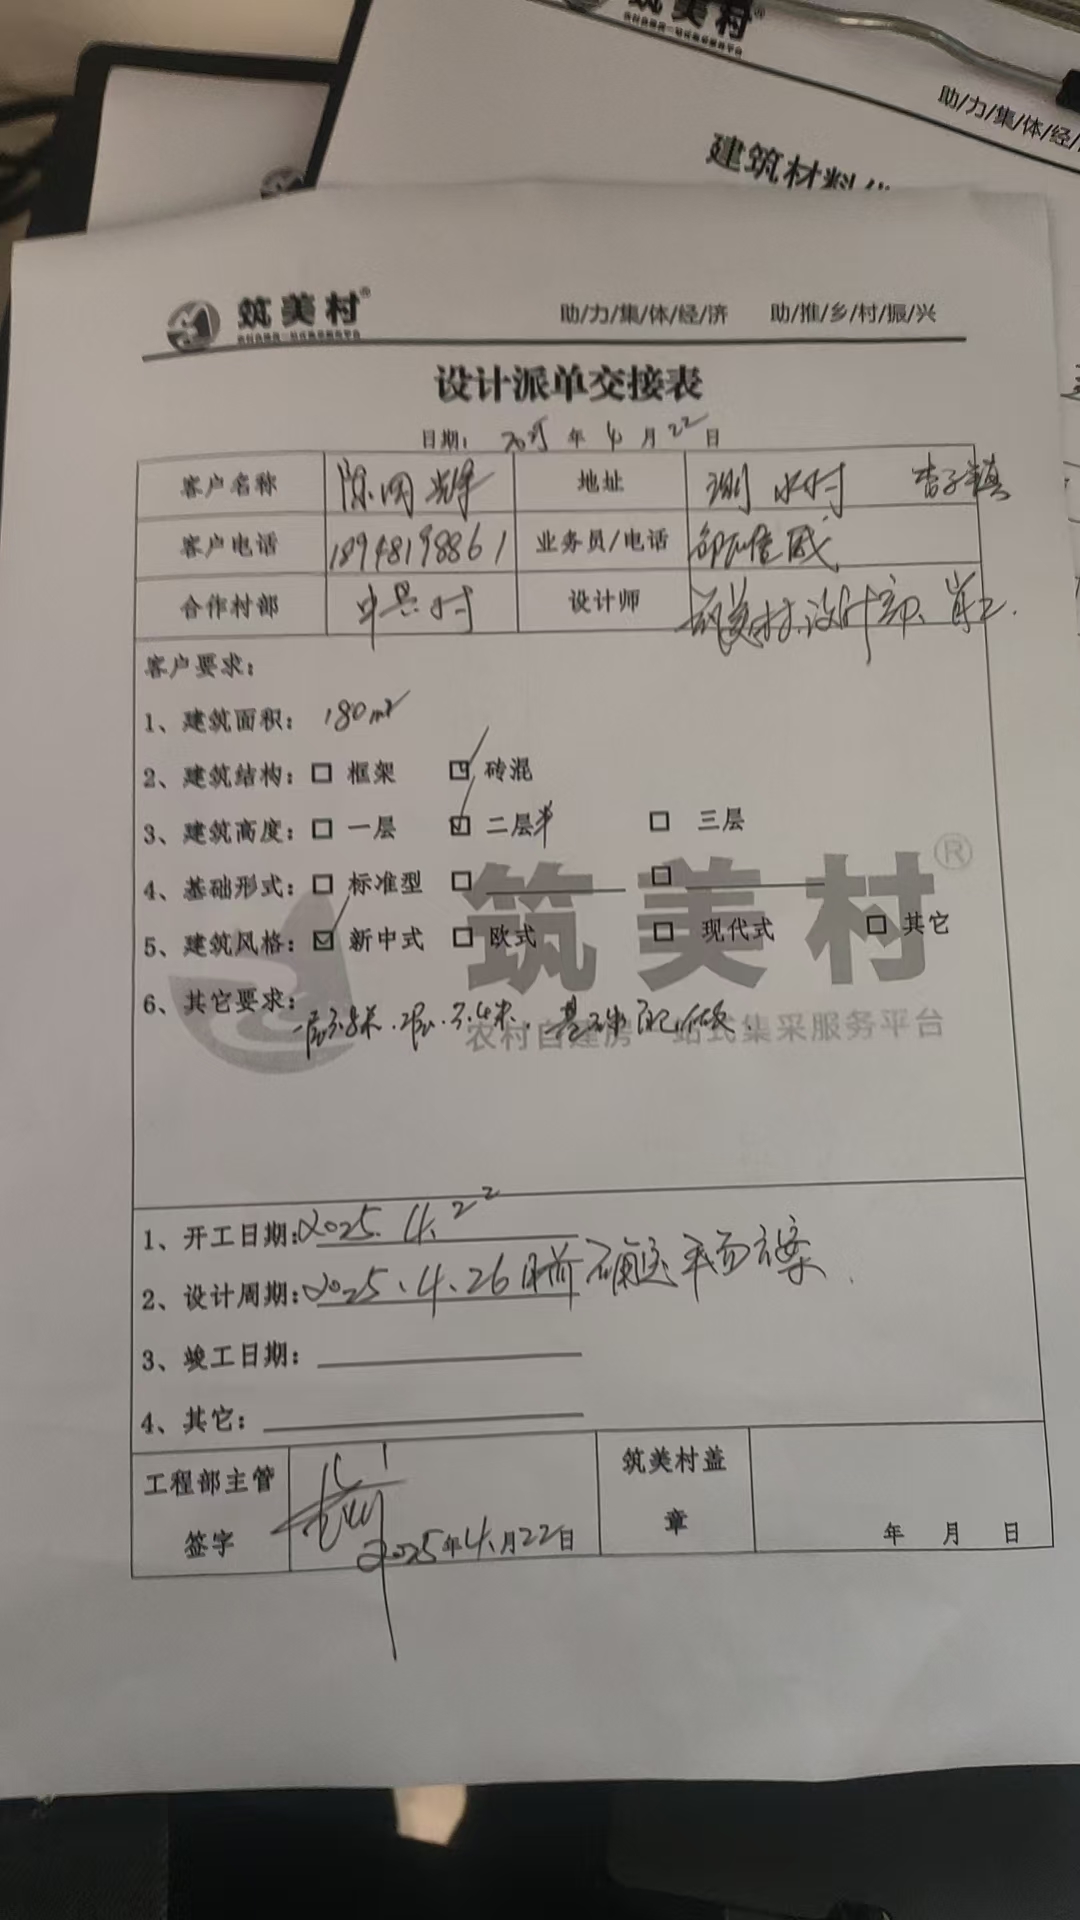 筑美村®
助/力/集/体/经/
建筑材料
筑美村®
助/力/集/体/经/济 助/推/乡/村/振/兴
设计派单交接表
日期: 2025 年 4 月 22 日
客户名称 陈 地址 测水村 杏子镇
客户电话 18948198861 业务员/电话
合作村部 中兴村 设计师 筑美村设计部、肖工.
客户要求:
1、建筑面积: 180m²
2、建筑结构: □ 框架 ☑ 砖混
3、建筑高度: □ 一层 ☑ 二层半 □ 三层
4、基础形式: □ 标准型 □ □
5、建筑风格: ☑ 新中式 □ 欧式 □ 现代式 □ 其它
6、其它要求: 一层3.8米. 二层.3.4米. 基础已做.
筑美村®
农村自建房一站式集采服务平台
1、开工日期: 2025.4.22
2、设计周期: 2025.4.26日前确定平面方案.
3、竣工日期:
4、其它:
工程部主管 筑美村盖
签字 2025年4月22日 章 年 月 日